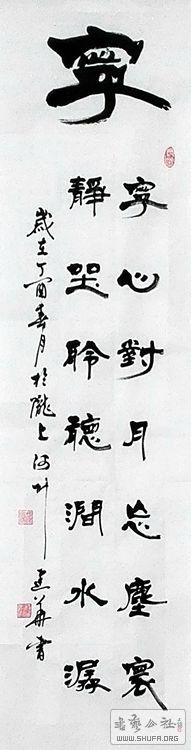 寧
寧心對月忘塵寰
靜坐聆聽澗水潺
歲在丁酉春月於隴上河州
建華書
書藝公社
WWW.SHUFA.ORG